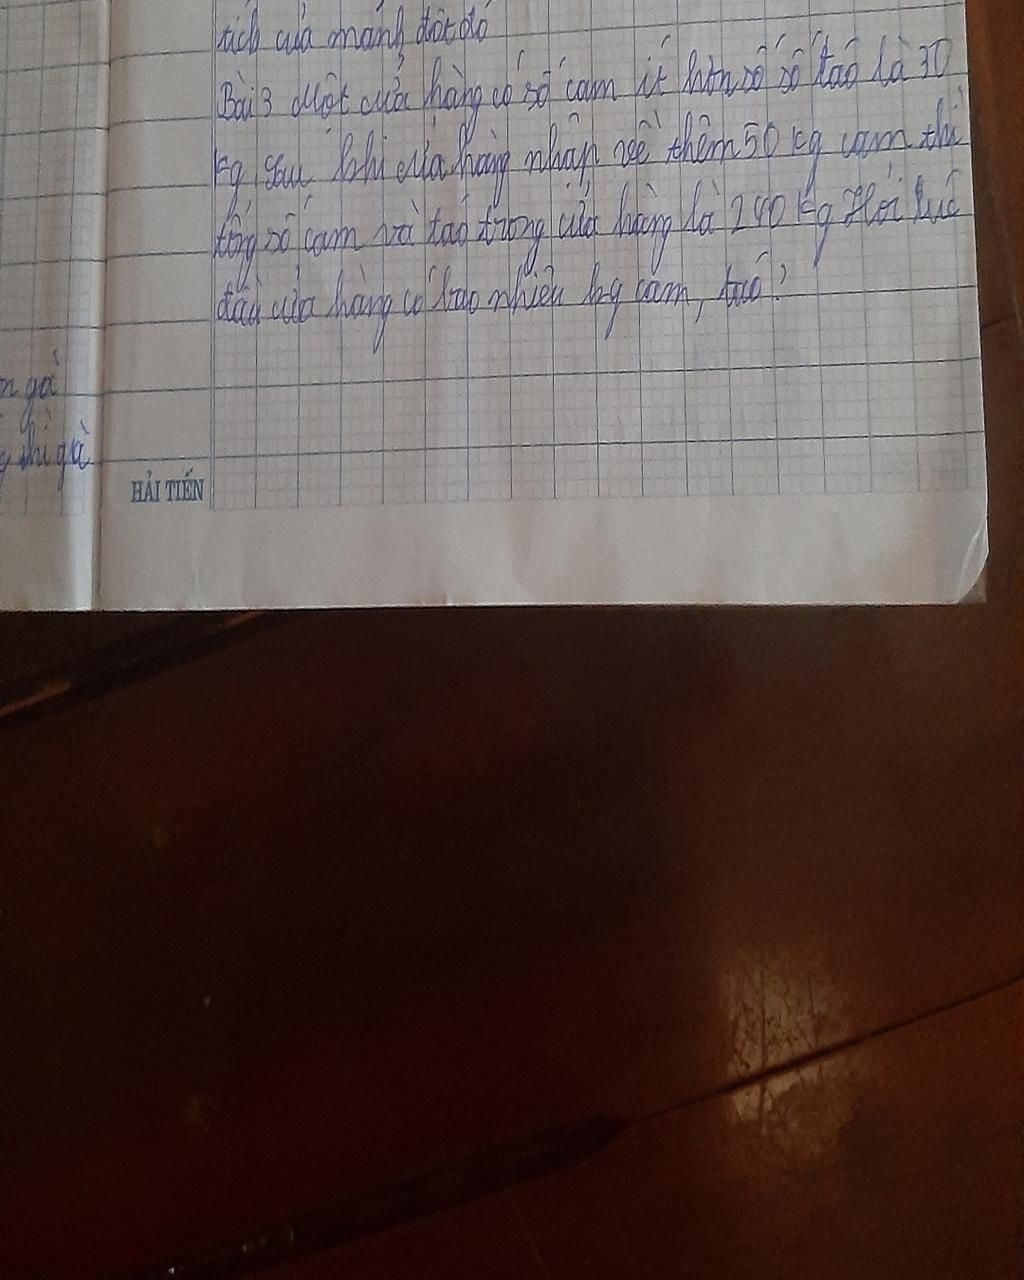 tích của mảnh đất đó
Bài 3 Một cửa hàng có số cam ít hơn số số táo là 30
kg sau khi cửa hàng nhập về thêm 50 kg cam thì
tổng số cam và táo trong cửa hàng là 240 kg Hỏi lúc
đầu cửa hàng có bao nhiêu kg cam, táo?
n gà
g thì gà
HẢI TIẾN